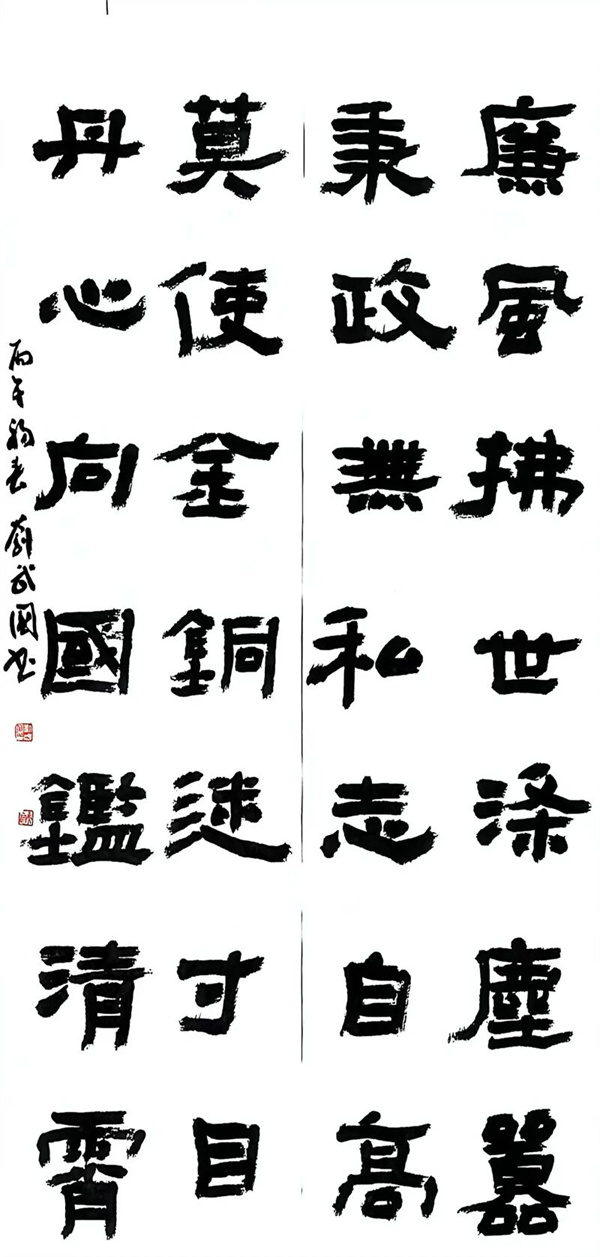 廉風拂世涤塵囂
秉政無私志自高
莫使金銅迷寸目
丹心向國鑑清霄
丙午初春 武國书